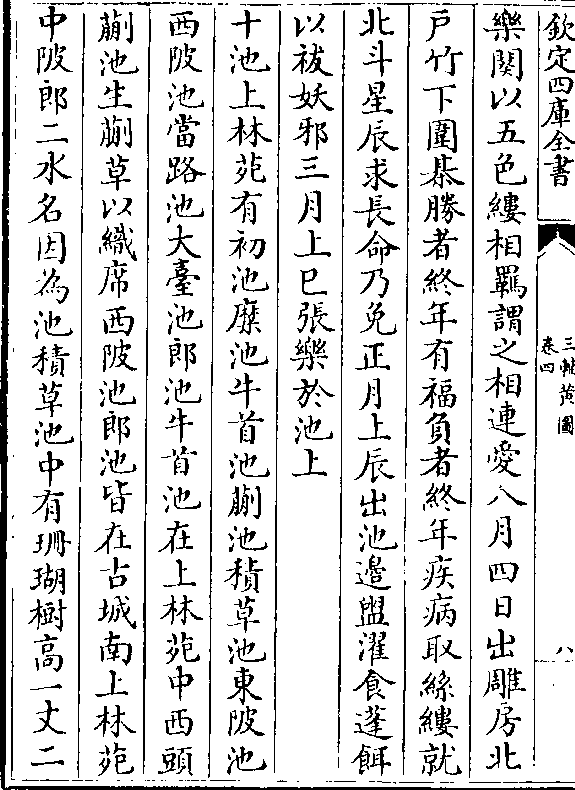 欽定四庫全書
三輔黃圖
卷四
八
樂闋以五色縷相羈謂之相連愛八月四日出雕房北
戶竹下圍棊勝者終年有福負者終年疾病取絲縷就
北斗星辰求長命乃免正月上辰出池邊盥濯食蓬餌
以祓妖邪三月上巳張樂於池上
十池上林苑有初池糜池牛首池蒯池積草池東陂池
西陂池當路池大臺池郎池牛首池在上林苑中西頭
蒯池生蒯草以織席西陂池郎池皆在古城南上林苑
中陂郎二水名因為池積草池中有珊瑚樹高一丈二